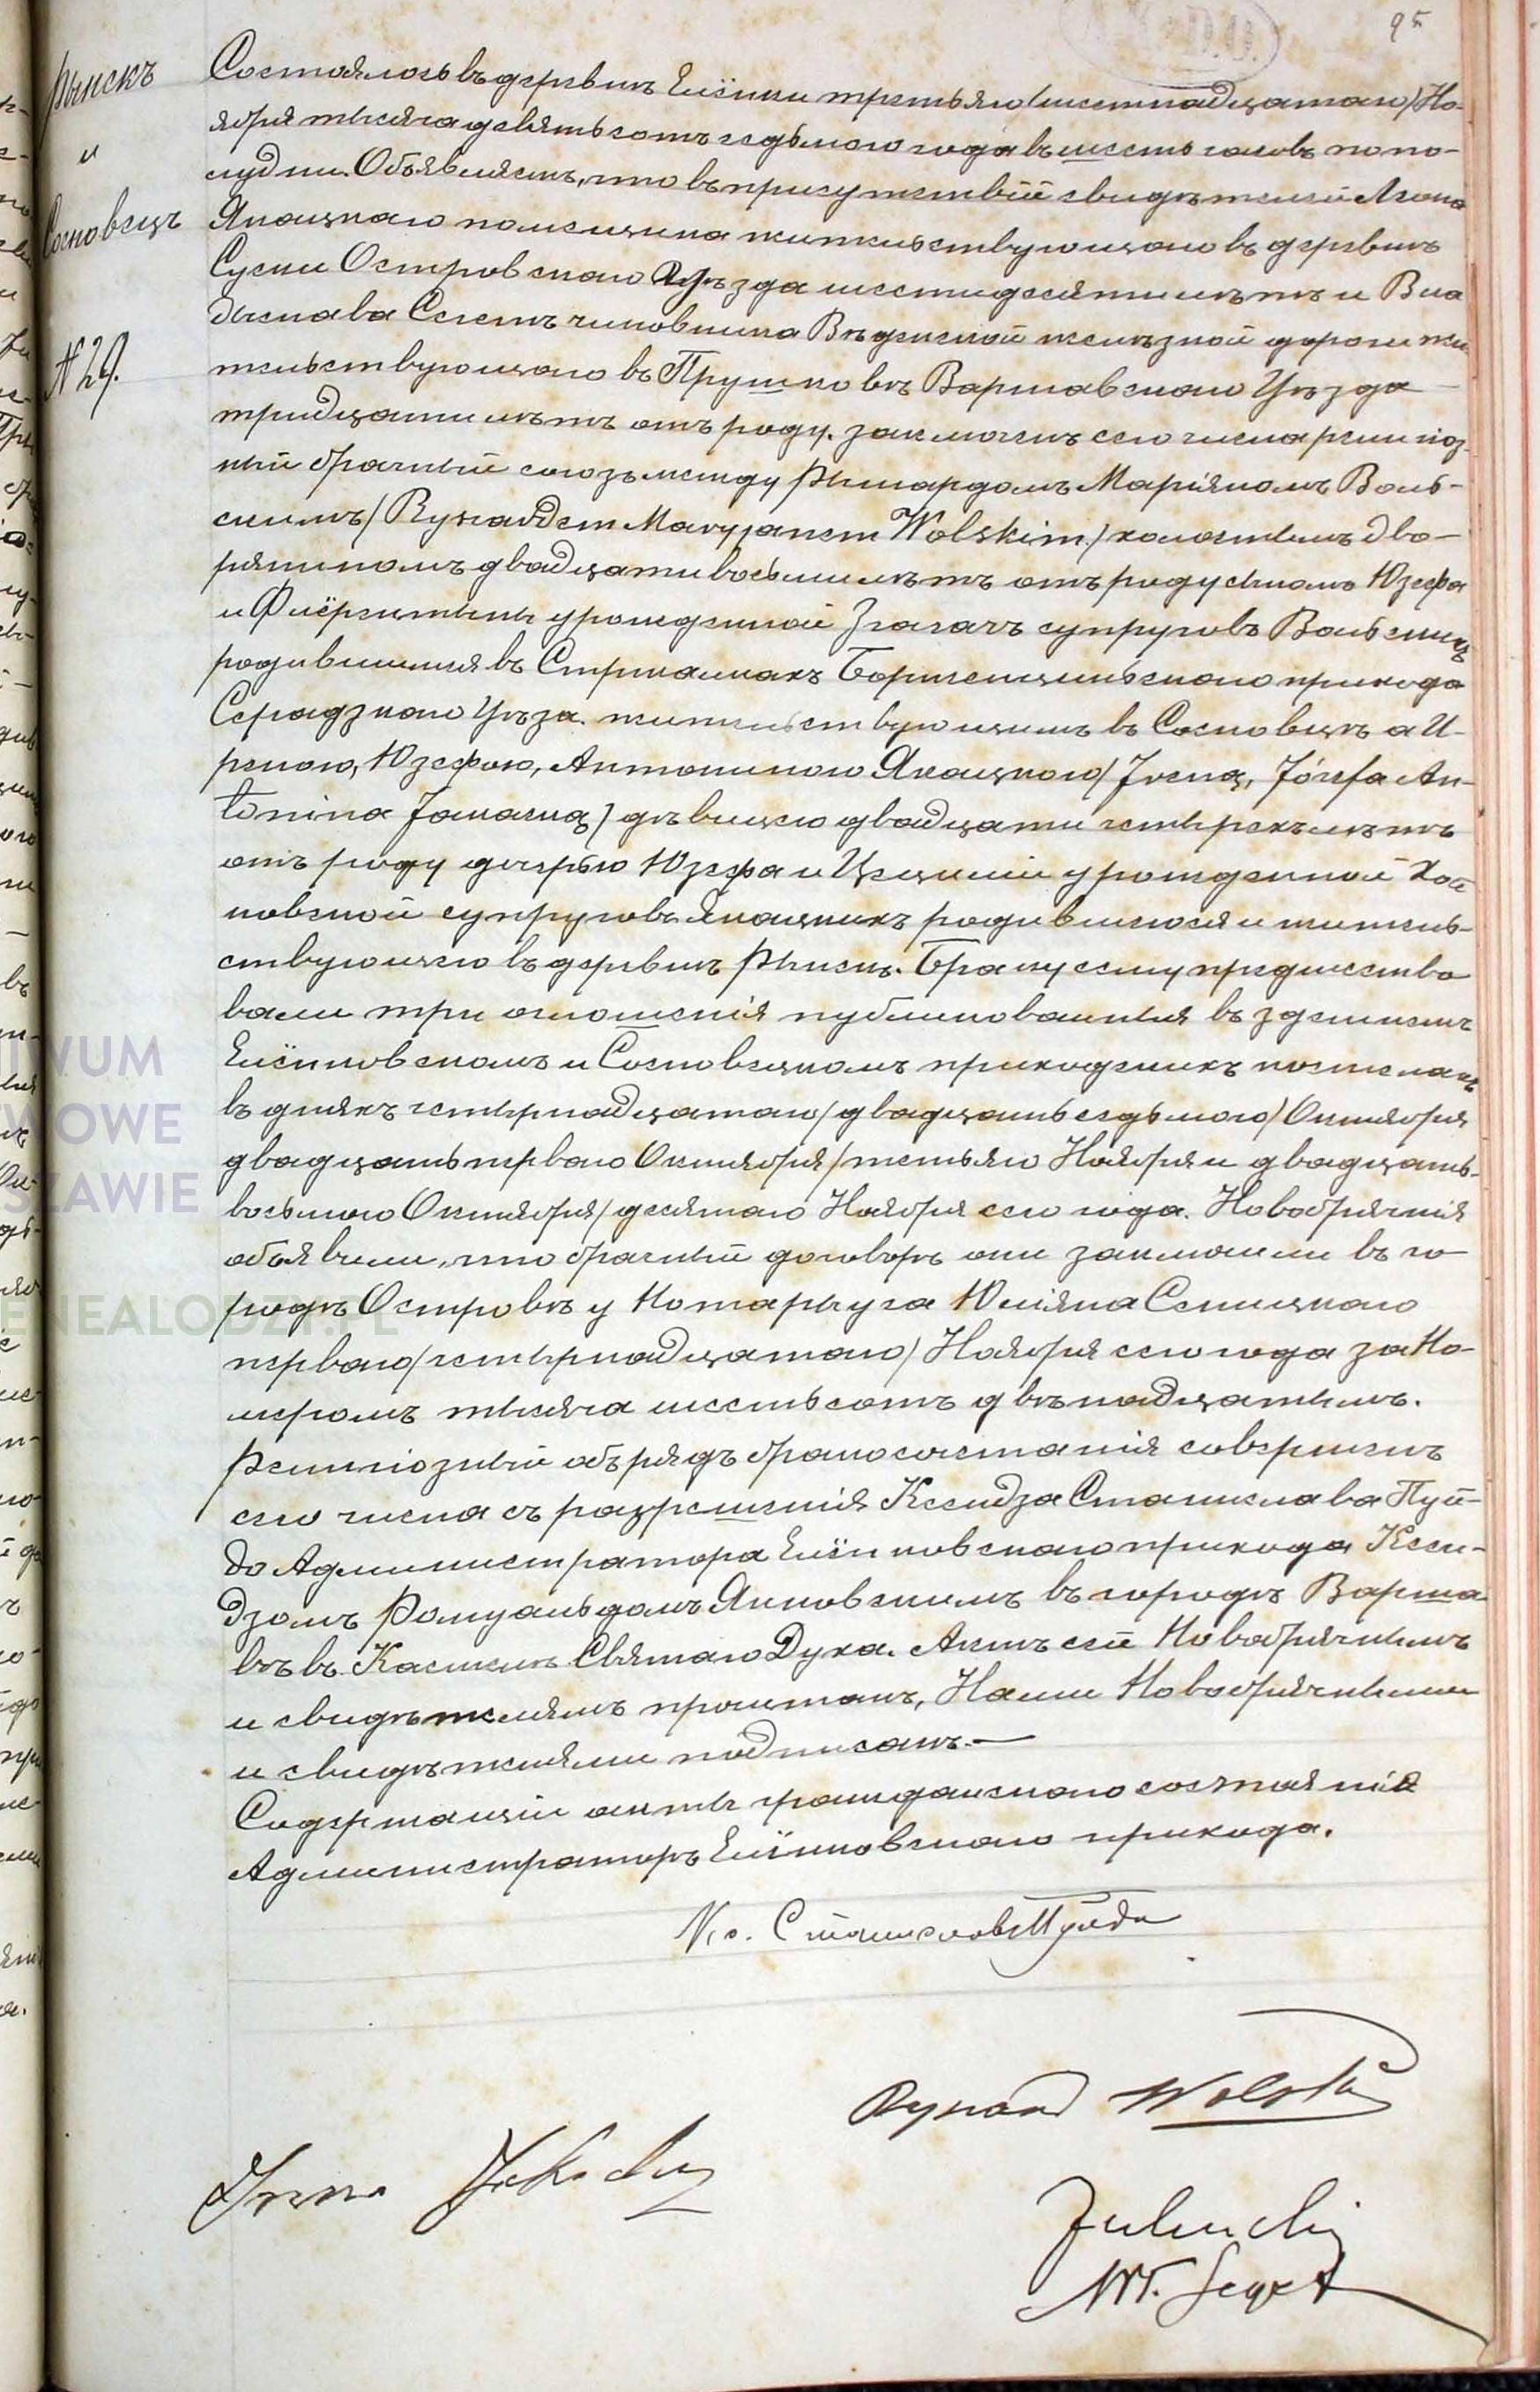 95
Рыскъ
и
Сосновецъ
№ 29.
Состоялось въ деревнѣ Елёнки третьяго /шестнадцатаго/ Но-
ября тысяча девятьсотъ седьмого года въ шесть часовъ по по-
лудни. Объявляемъ, что въ присутствіи свидѣтелей Леона
Якацкаго помещика жительствующаго въ деревнѣ
Суски Островскаго Уѣзда шестидесяти лѣтъ и Вла
дыслава Сегетъ чиновника Вѣденской желѣзной дороги жи-
тельствующаго въ Прушковѣ Варшавскаго Уѣзда
тридцати лѣтъ отъ роду. заключенъ сего числа религіоз-
ный брачный союзъ между Рышардомъ Маріяномъ Воль-
скимъ /Ryszardem Maryjanem Wolskim/ холостымъ дво-
ряниномъ двадцати восьми лѣтъ отъ роду сыномъ Юзефа
и Флёрентыны урожденной Згагачъ супруговъ Вольскихъ
родившимся въ Стржалкахъ скаго прихода
Серадзкаго Уѣза. жительствующимъ въ Сосновцѣ а И-
реною, Юзефою, Антониною Якацкою /Ireną, Józefa An-
tonina Jakacką/ дѣвицею двадцати четырехъ лѣтъ
отъ роду дочерью Юзефа и Цециліи урожденной Хой
новской супруговъ Якацкихъ родившеюся и житель-
ствующею въ деревнѣ Рыскъ. Браку сему предшество
вали три оглошенія публикованныя въ здешнемъ
Елёнковскомъ и Сосновецкомъ приходскихъ костелахъ
въ дняхъ четырнадцатаго /двадцать седьмого/ Октября
двадцать перваго Октября /тетьяго Ноября и двадцать-
восьмого Октября /десятаго Ноября сего года. Новобрачнія
объявили, что брачный договоръ они заключили въ го-
родѣ Островѣ у Нотарыуса Юліяна Сеницкаго
перваго /четырнадцатаго/ Ноября сего года за Но-
меромъ тысяча шестьсотъ двѣнадцатымъ.
Религіозный обърядъ бракосочетанія совершенъ
сего числа съ разрешенія Ксендза Станислава Пуй-
до Администратора Елёнковскаго прихода Ксен-
дзомъ Ромуальдомъ Янковскимъ въ городѣ Варша
вѣ въ Костелѣ Святаго Духа. Актъ сей Новобрачнымъ
и свидѣтелямъ прочитанъ, Нами Новобрачными
и свидѣтелями подписанъ.—
Содержащій акты гражданскаго состоянія
Администраторъ Елёнковскаго прихода.
Кс. Станиславъ Пуйдо
Ryszard Wolski
Irena Jakacka
Jakacki
Wł. Seget